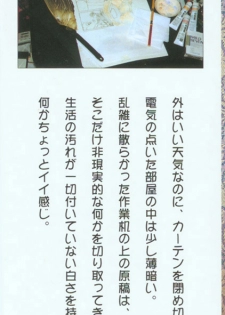 外はいい天気なのに、カーテンを閉め切
電気の点いた部屋の中は少し薄暗い。
乱雑に散らかった作業机の上の原稿は、
そこだけ非現実的な何かを切り取ってき
生活の汚れが一切付いていない白さを持
何かちょっとイイ感じ。